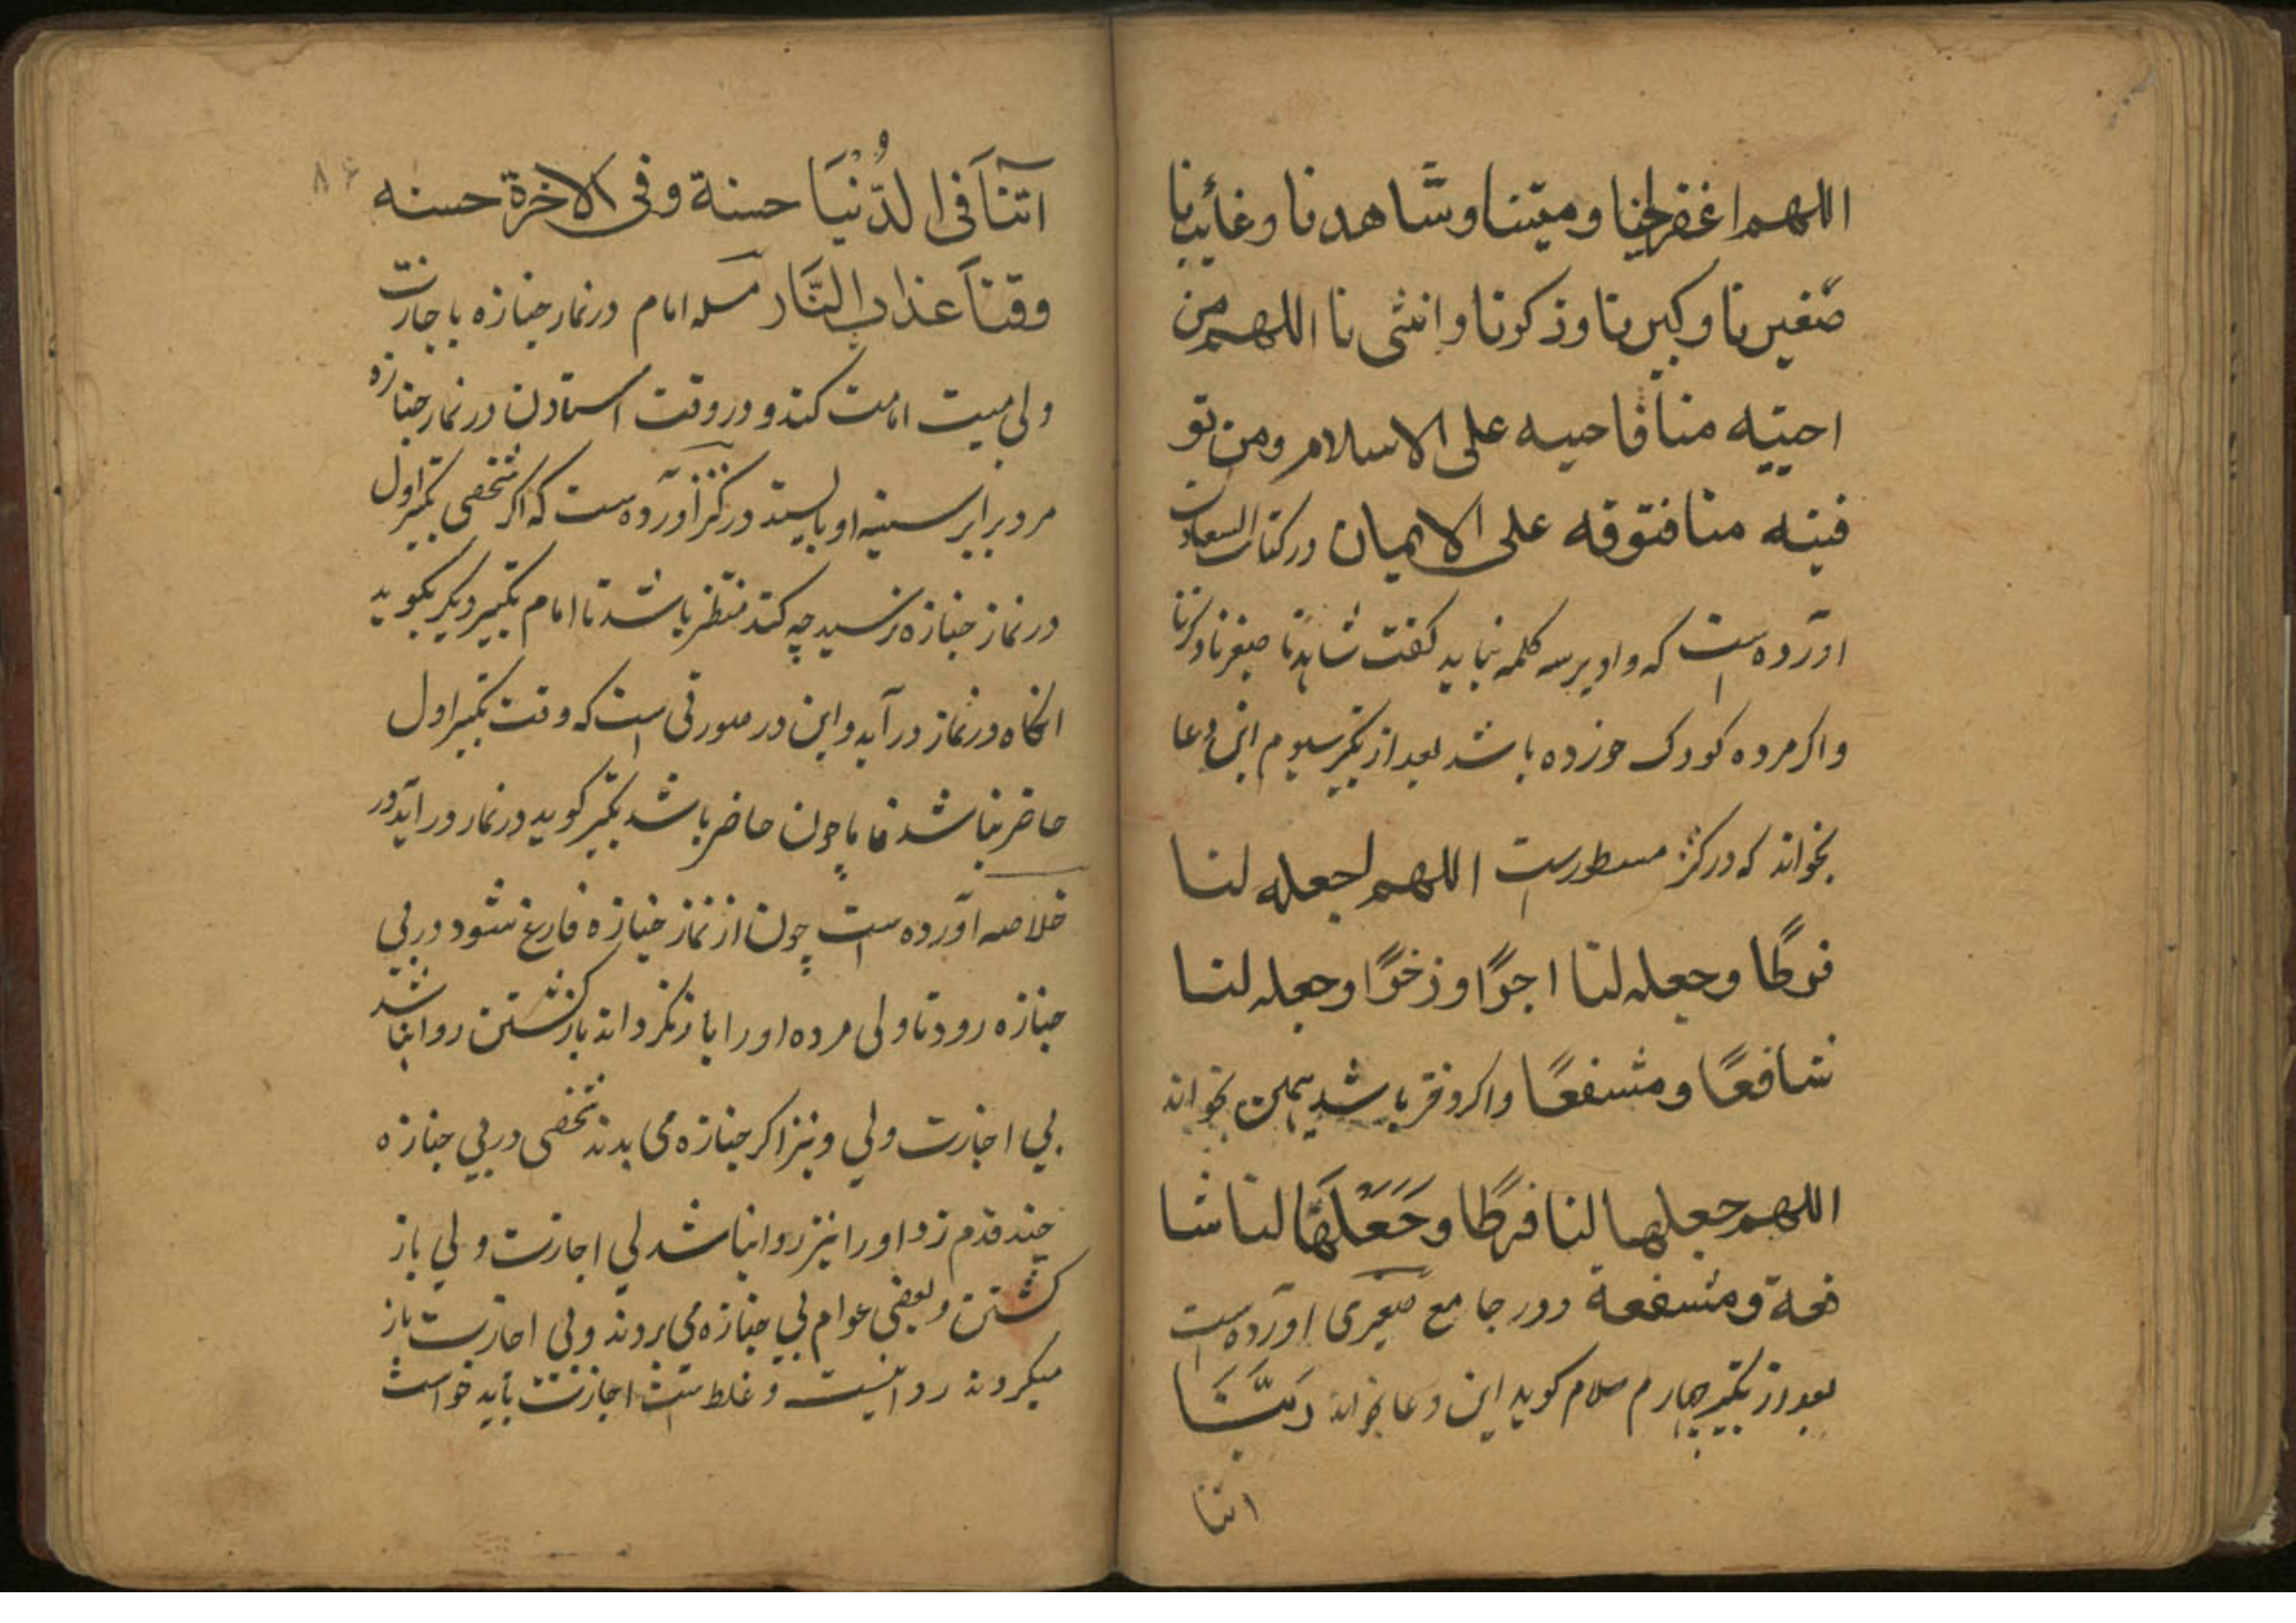 اللهم اغفر لحینا ومیتنا وشاهدنا وغائبنا
صغیرنا وکبیرنا وذکورنا وانثی نا اللهم من
احییته منا فاحیه علی الاسلام ومن تو
فیته منا فتوفه علی الایمان در کتاب السعادت
آورده است که واو بر سه کلمه نباید گفت شاهدنا صغیرنا ذکرنا
واکر مرده کودک خورده باشد بعد از تکبیر سیوم این دعا
بخواند که در کنز مسطورست اللهم اجعله لنا
فرطا وجعله لنا اجرًا وزخرًا وجعله لنا
شافعًا ومشفعًا واکر دختر باشد همین بخواند
اللهم جعلها لنا فرطًا وجَعَلَهَا لنا شا
فعة ومشفعة ودر جامع صغیری آورده است
بعد از تکبیر چهارم سلام کوید این دعا بخواند رَبَّنَا
اتنا
۸۴
آتنَا فی الدُّنْیَا حسنة وفی الاخرة حسنه
وقنا عذاب النَّار مسله امام در نماز جنازه با جازت
ولی میت امامت کند و در وقت استادن در نماز جنازه
مرد برابر سینه او بایستد در کنز آورده ست که اکر شخصی تکبیر اول
در نماز جنازه نرسید چه کند منتظر باشد تا امام تکبیر دیکر بکوید
انکاه در نماز درآید و این در صورتی است که وقت تکبیر اول
حاضر نباشد فاما چون حاضر باشد تکبیر کوید در نماز درآید در
خلاصه آورده است چون از نماز جنازه فارغ شود در پی
جنازه رود تا ولی مرده او را باز نکرداند باز کشتن روا نباشد
بی اجازت ولی و نیز اکر جنازه می بدند شخصی در پی جنازه
چند قدم زد او را نیز روا نباشد بی اجازت ولی باز
کشتن و بعضی عوام پی جنازه می بروند و بی اجازت باز
میکردند روا نیست و غلط است اجازت باید خواست